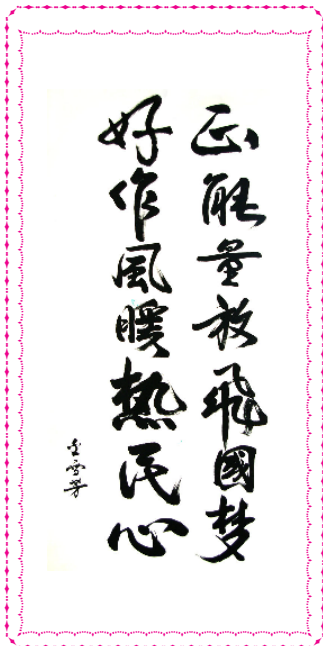 正能量放飛國梦
好作風暖热民心
金雪芳